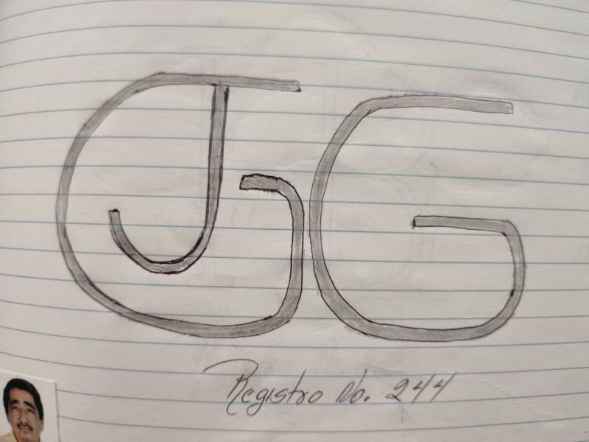 JGG
Registro No. 244